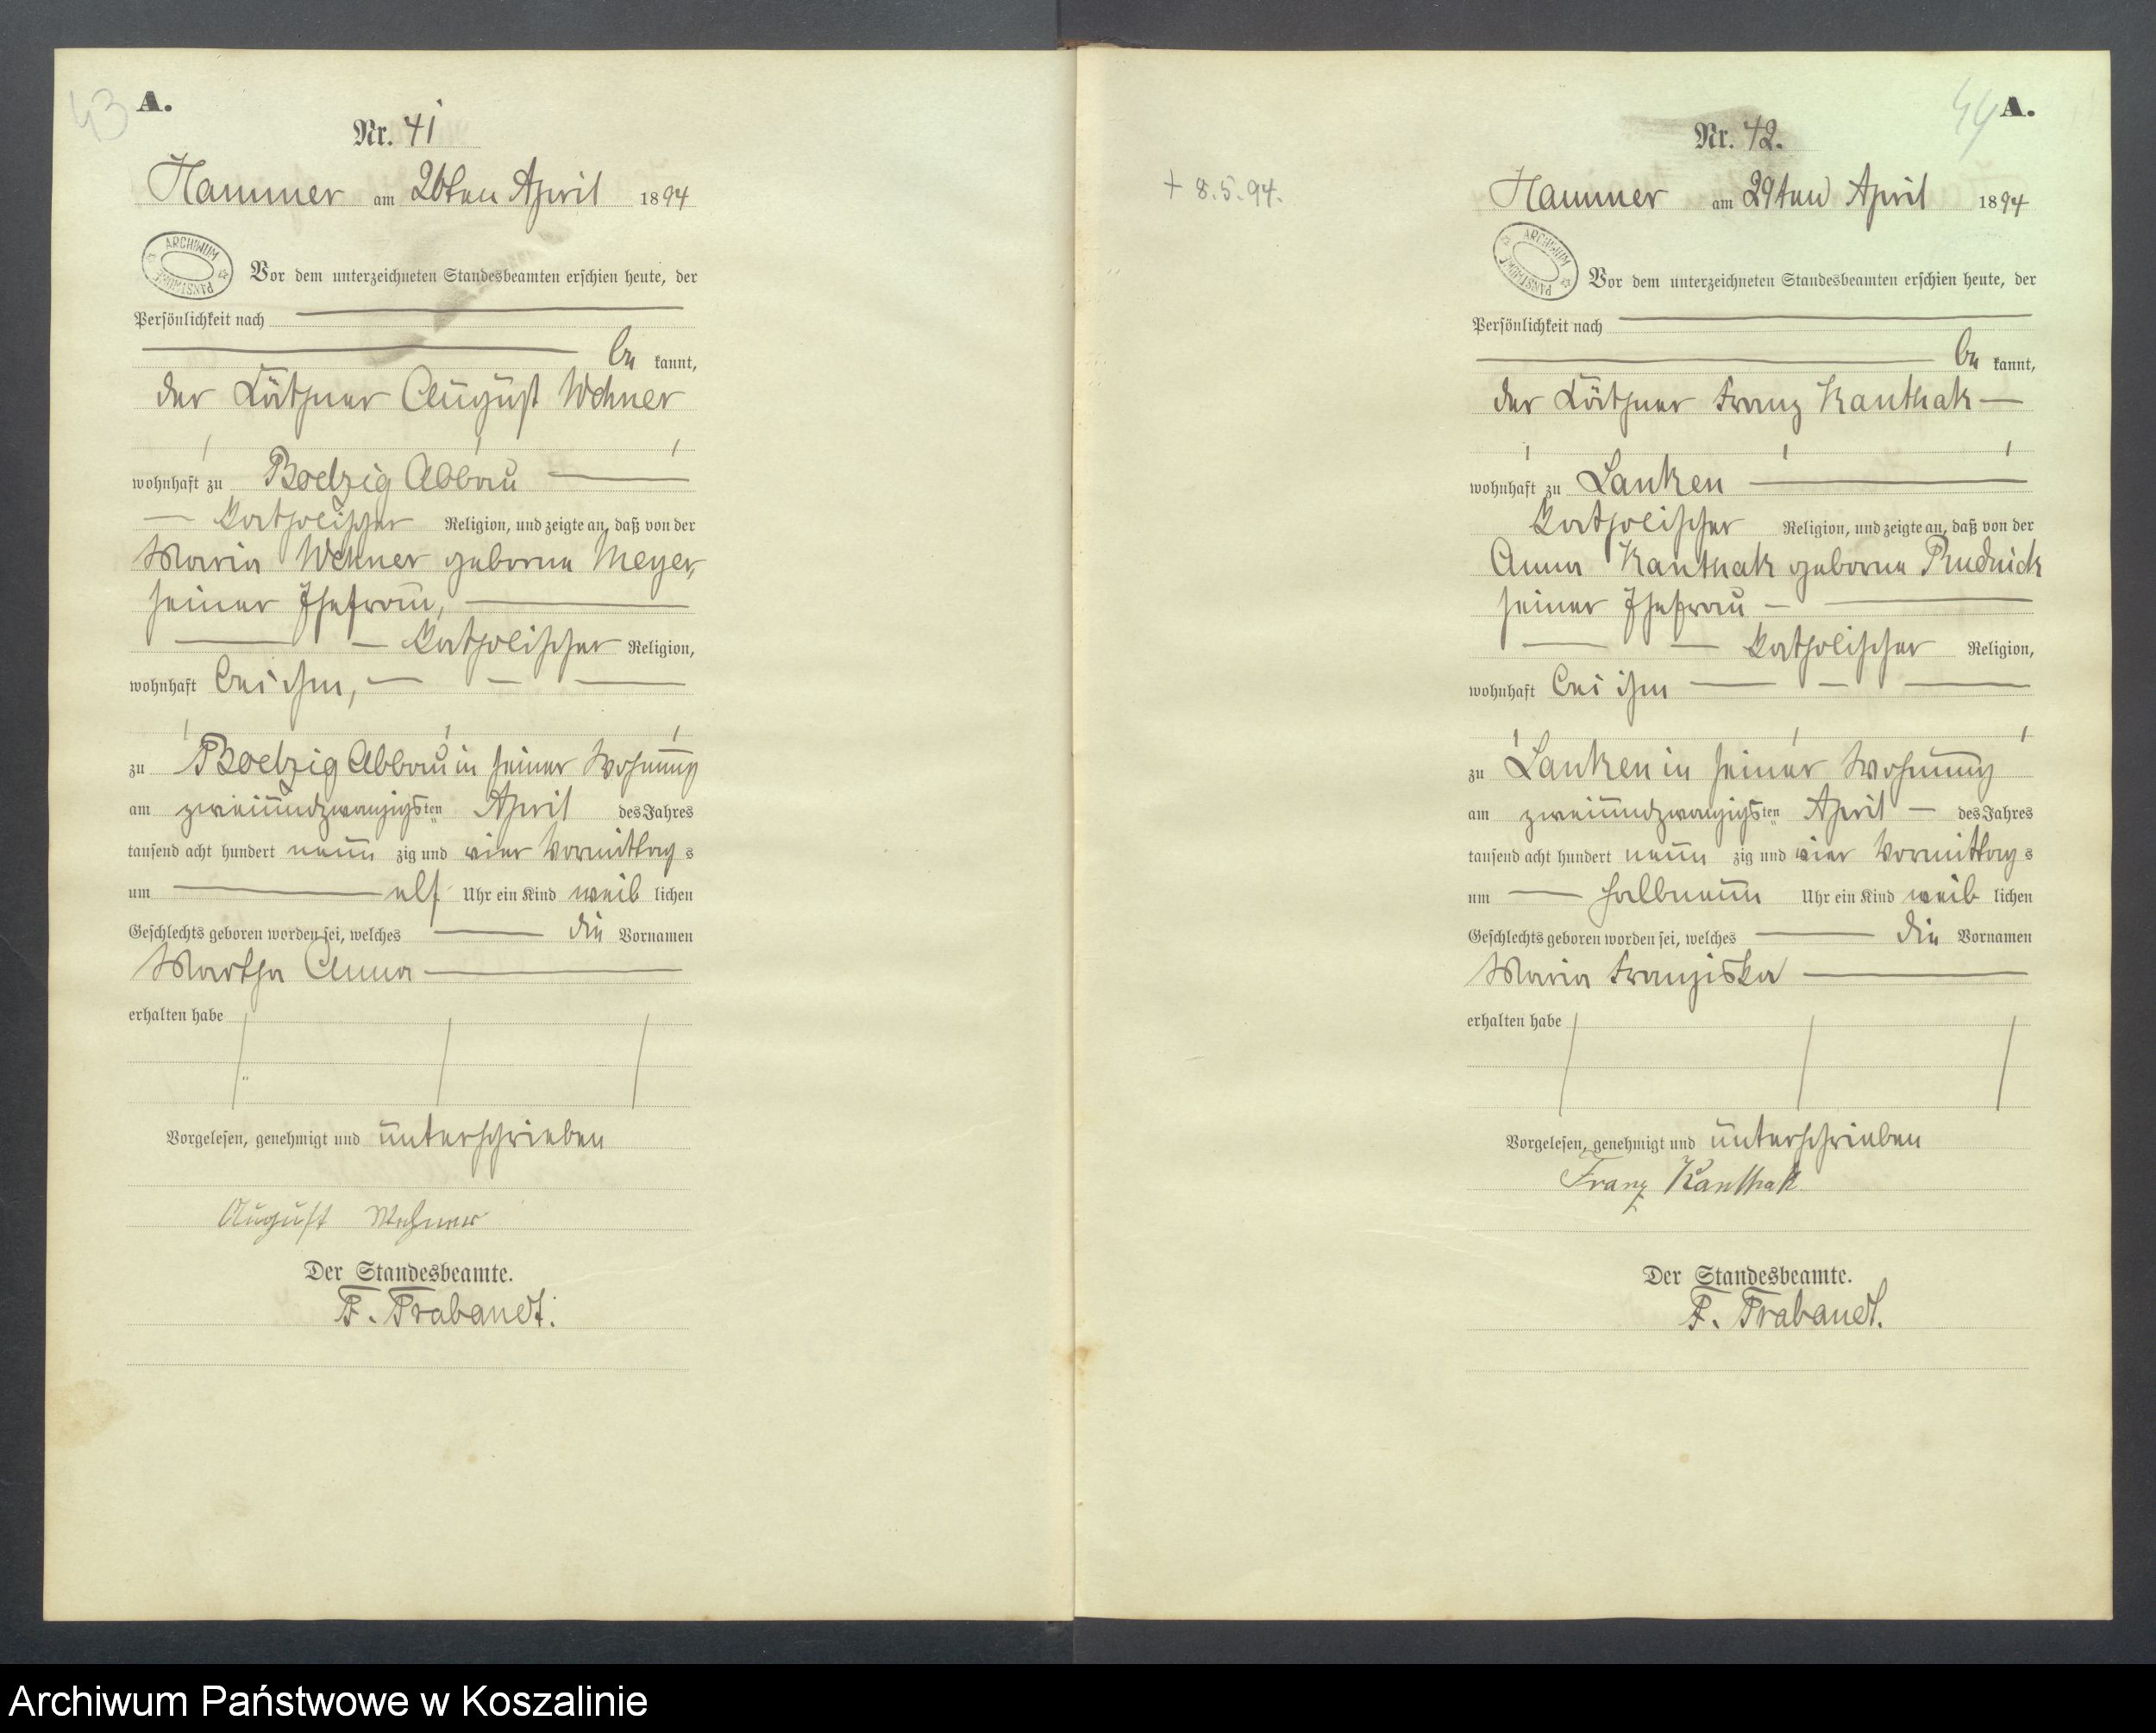 43
A.
Nr. 41
Hammer am 26ten April 1894
ARCHIWUM PAŃSTWOWE
Vor dem unterzeichneten Standesbeamten erschien heute, der
Persönlichkeit nach
be kannt,
der Käthner August Wehner
wohnhaft zu Boelzig Abbau
katholischer Religion, und zeigte an, daß von der
Maria Wehner geborne Meyer,
seiner Ehefrau,
katholischer Religion,
wohnhaft bei ihm,
zu Boelzig Abbau in seiner Wohnung
am zweiundzwanzigsten April des Jahres
tausend acht hundert neun zig und vier Vormittag s
um elf Uhr ein Kind weib lichen
Geschlechts geboren worden sei, welches die Vornamen
Martha Anna
erhalten habe
Vorgelesen, genehmigt und unterschrieben
August Wehner
Der Standesbeamte.
F. Trabandt.
44
A.
Nr. 42.
+ 8.5.94.
Hammer am 29ten April 1894
ARCHIWUM PAŃSTWOWE
Vor dem unterzeichneten Standesbeamten erschien heute, der
Persönlichkeit nach
be kannt,
der Käthner Franz Kanthak
wohnhaft zu Lanken
katholischer Religion, und zeigte an, daß von der
Anna Kanthak geborne Rudnick
seiner Ehefrau
katholischer Religion,
wohnhaft bei ihm
zu Lanken in seiner Wohnung
am zweiundzwanzigsten April des Jahres
tausend acht hundert neun zig und vier Vormittag s
um halbneun Uhr ein Kind weib lichen
Geschlechts geboren worden sei, welches die Vornamen
Maria Franziska
erhalten habe
Vorgelesen, genehmigt und unterschrieben
Franz Kanthak
Der Standesbeamte.
F. Trabandt.
Archiwum Państwowe w Koszalinie